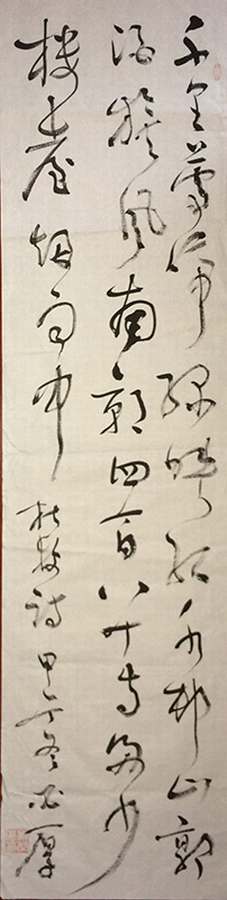 千里鶯啼綠映紅水村山郭
酒旗風南朝四百八十寺多少
樓臺烟雨中
杜牧詩甲午冬